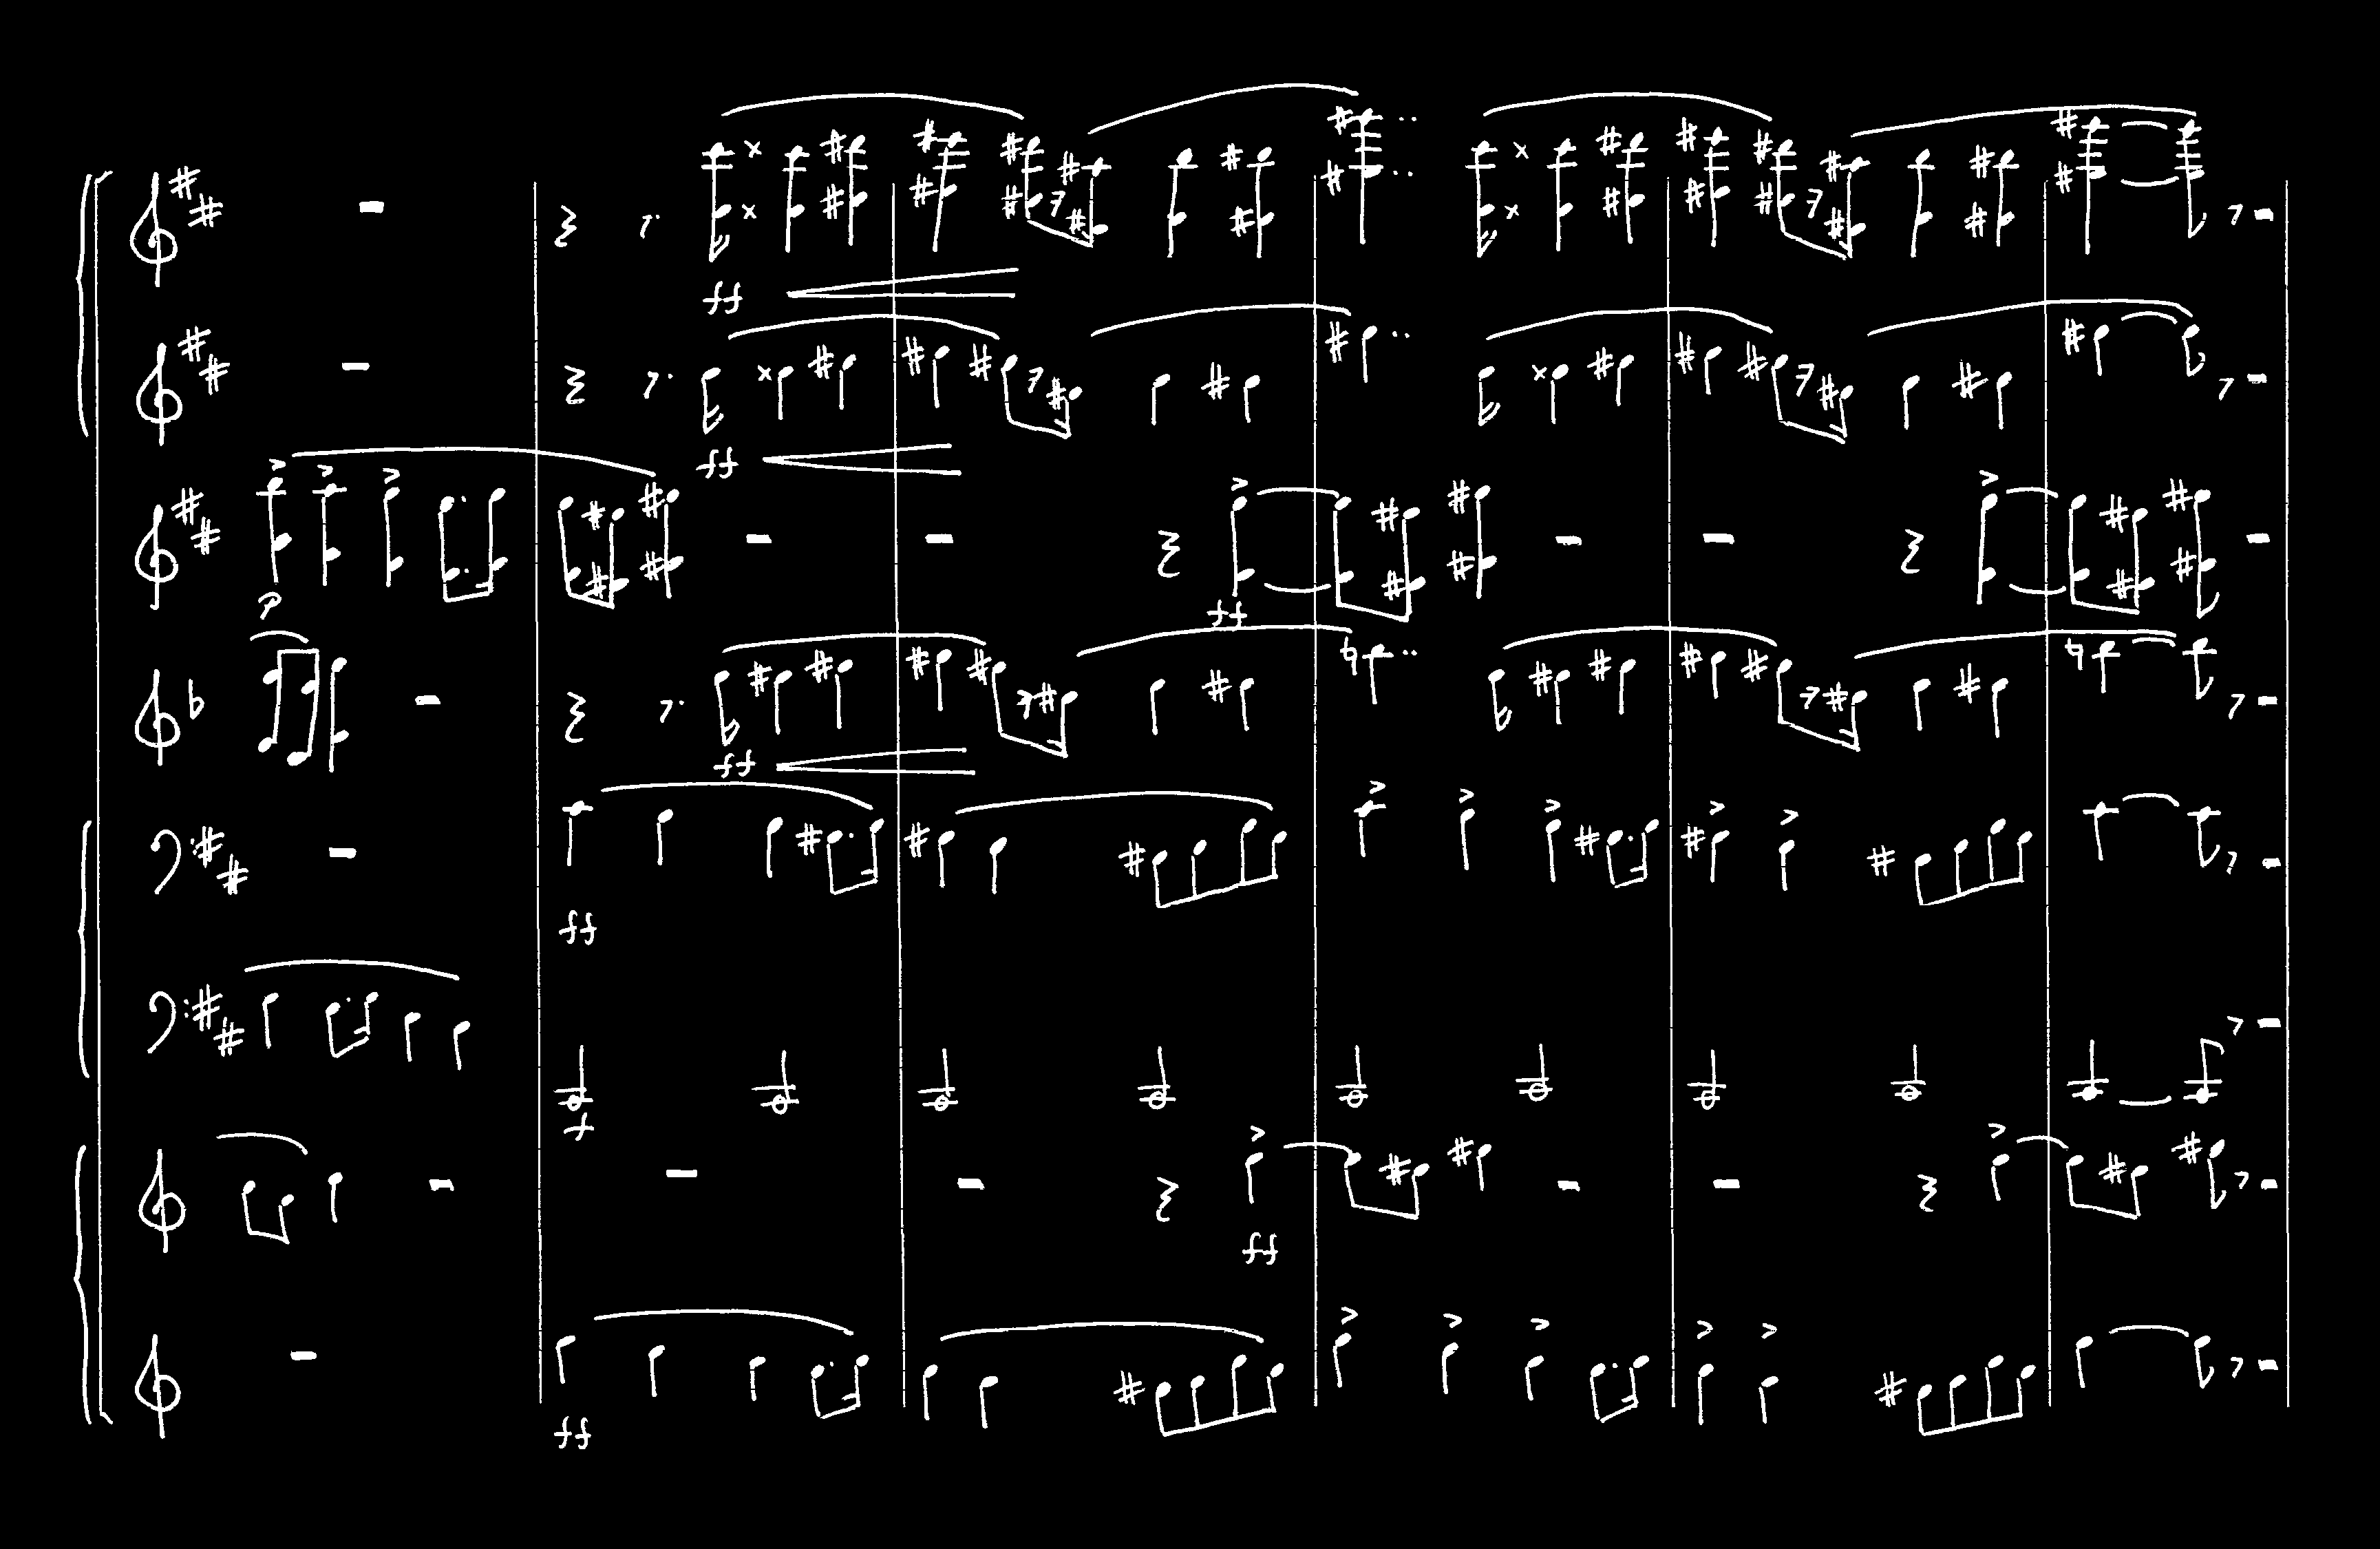 ff
ff
p ff
ff
ff
f
ff
ff